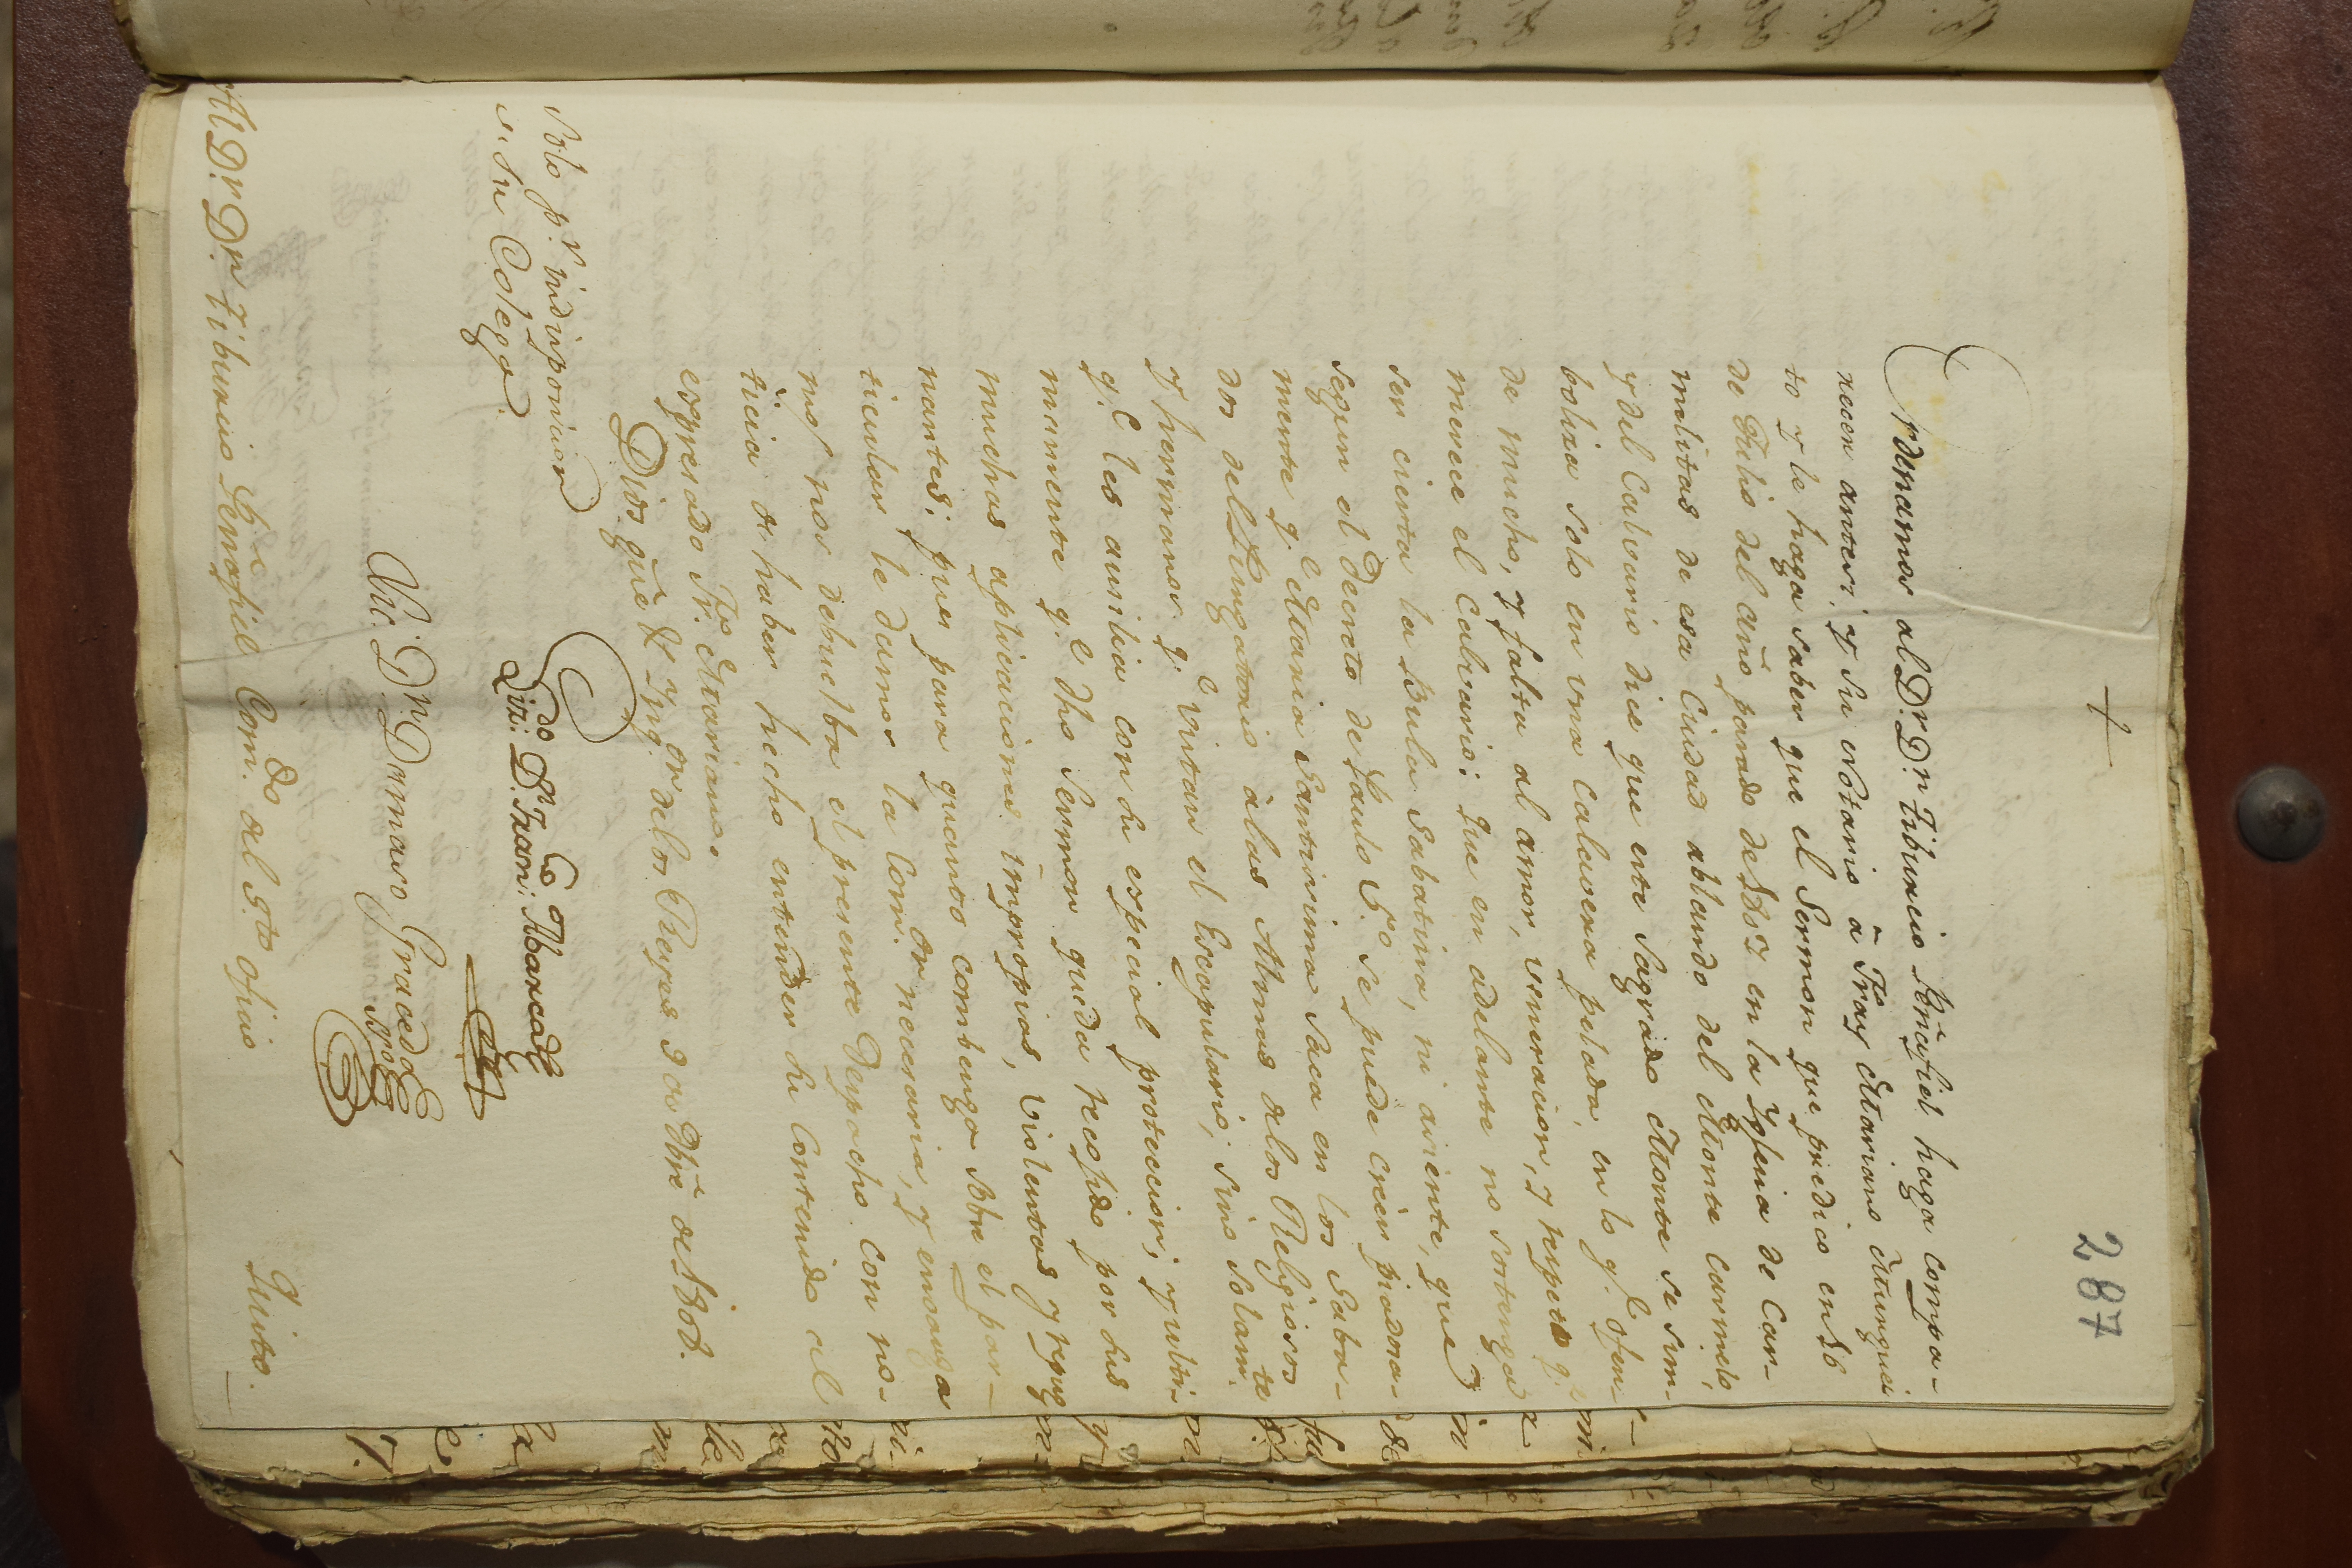 +
287
Ordenamos al D.r D.n Tiburcio Peñafiel haga compa-
recer antesi, y su Notario â Fray Mariano
to y le haga saber que el Sermon que predicó en 16
de Julio del año pasado de 1802 en la Yglesia de Car-
melitas de esa Ciudad ablando del Monte Carmelo,
y del Calvario dice que este Sagrado Monte se sim-
boliza solo en una calavera pelada, en lo q.e ofen-
de mucho, y falta al amor, veneracion, y respeto q.e
merece el Calvario: que en adelante no sostenga
ser cierta la Bula Sabatina, ni asiente, que
segun el Decreto de Paulo 5.o se puede creèr piadosa-
mente q.e Maria Santisima saca en los Saba-
dos del Purgatorio à las Almas de los Religiosos
y hermanos q.e vistan el Escapulario, sino solam.te
q.e les auxilia con su especial proteccion; y ulti-
mamente q.e dho Sermon queda recogido por sus
muchas aplicaciones improprias, violentas y repug-
nantes; pues para quanto combenga sobre el par-
ticular le damos la Com.on necesaria, y encarga
mos nos debuelba el presente Despacho con no-
ticia de haber hecho entender su contenido al
expresado Fr. Mariano.
Dios gũe Ynq.on de los Reyes 9 de Nbrẽ de 1802.
Solo p.r indisposicion
de su Colega.
Liz.do D.n Fran.co Abarca
Dr. Dn. Damaso
Al D.r D.n Tiburcio Peñafiel Com.do del S.to oficio
Quito.